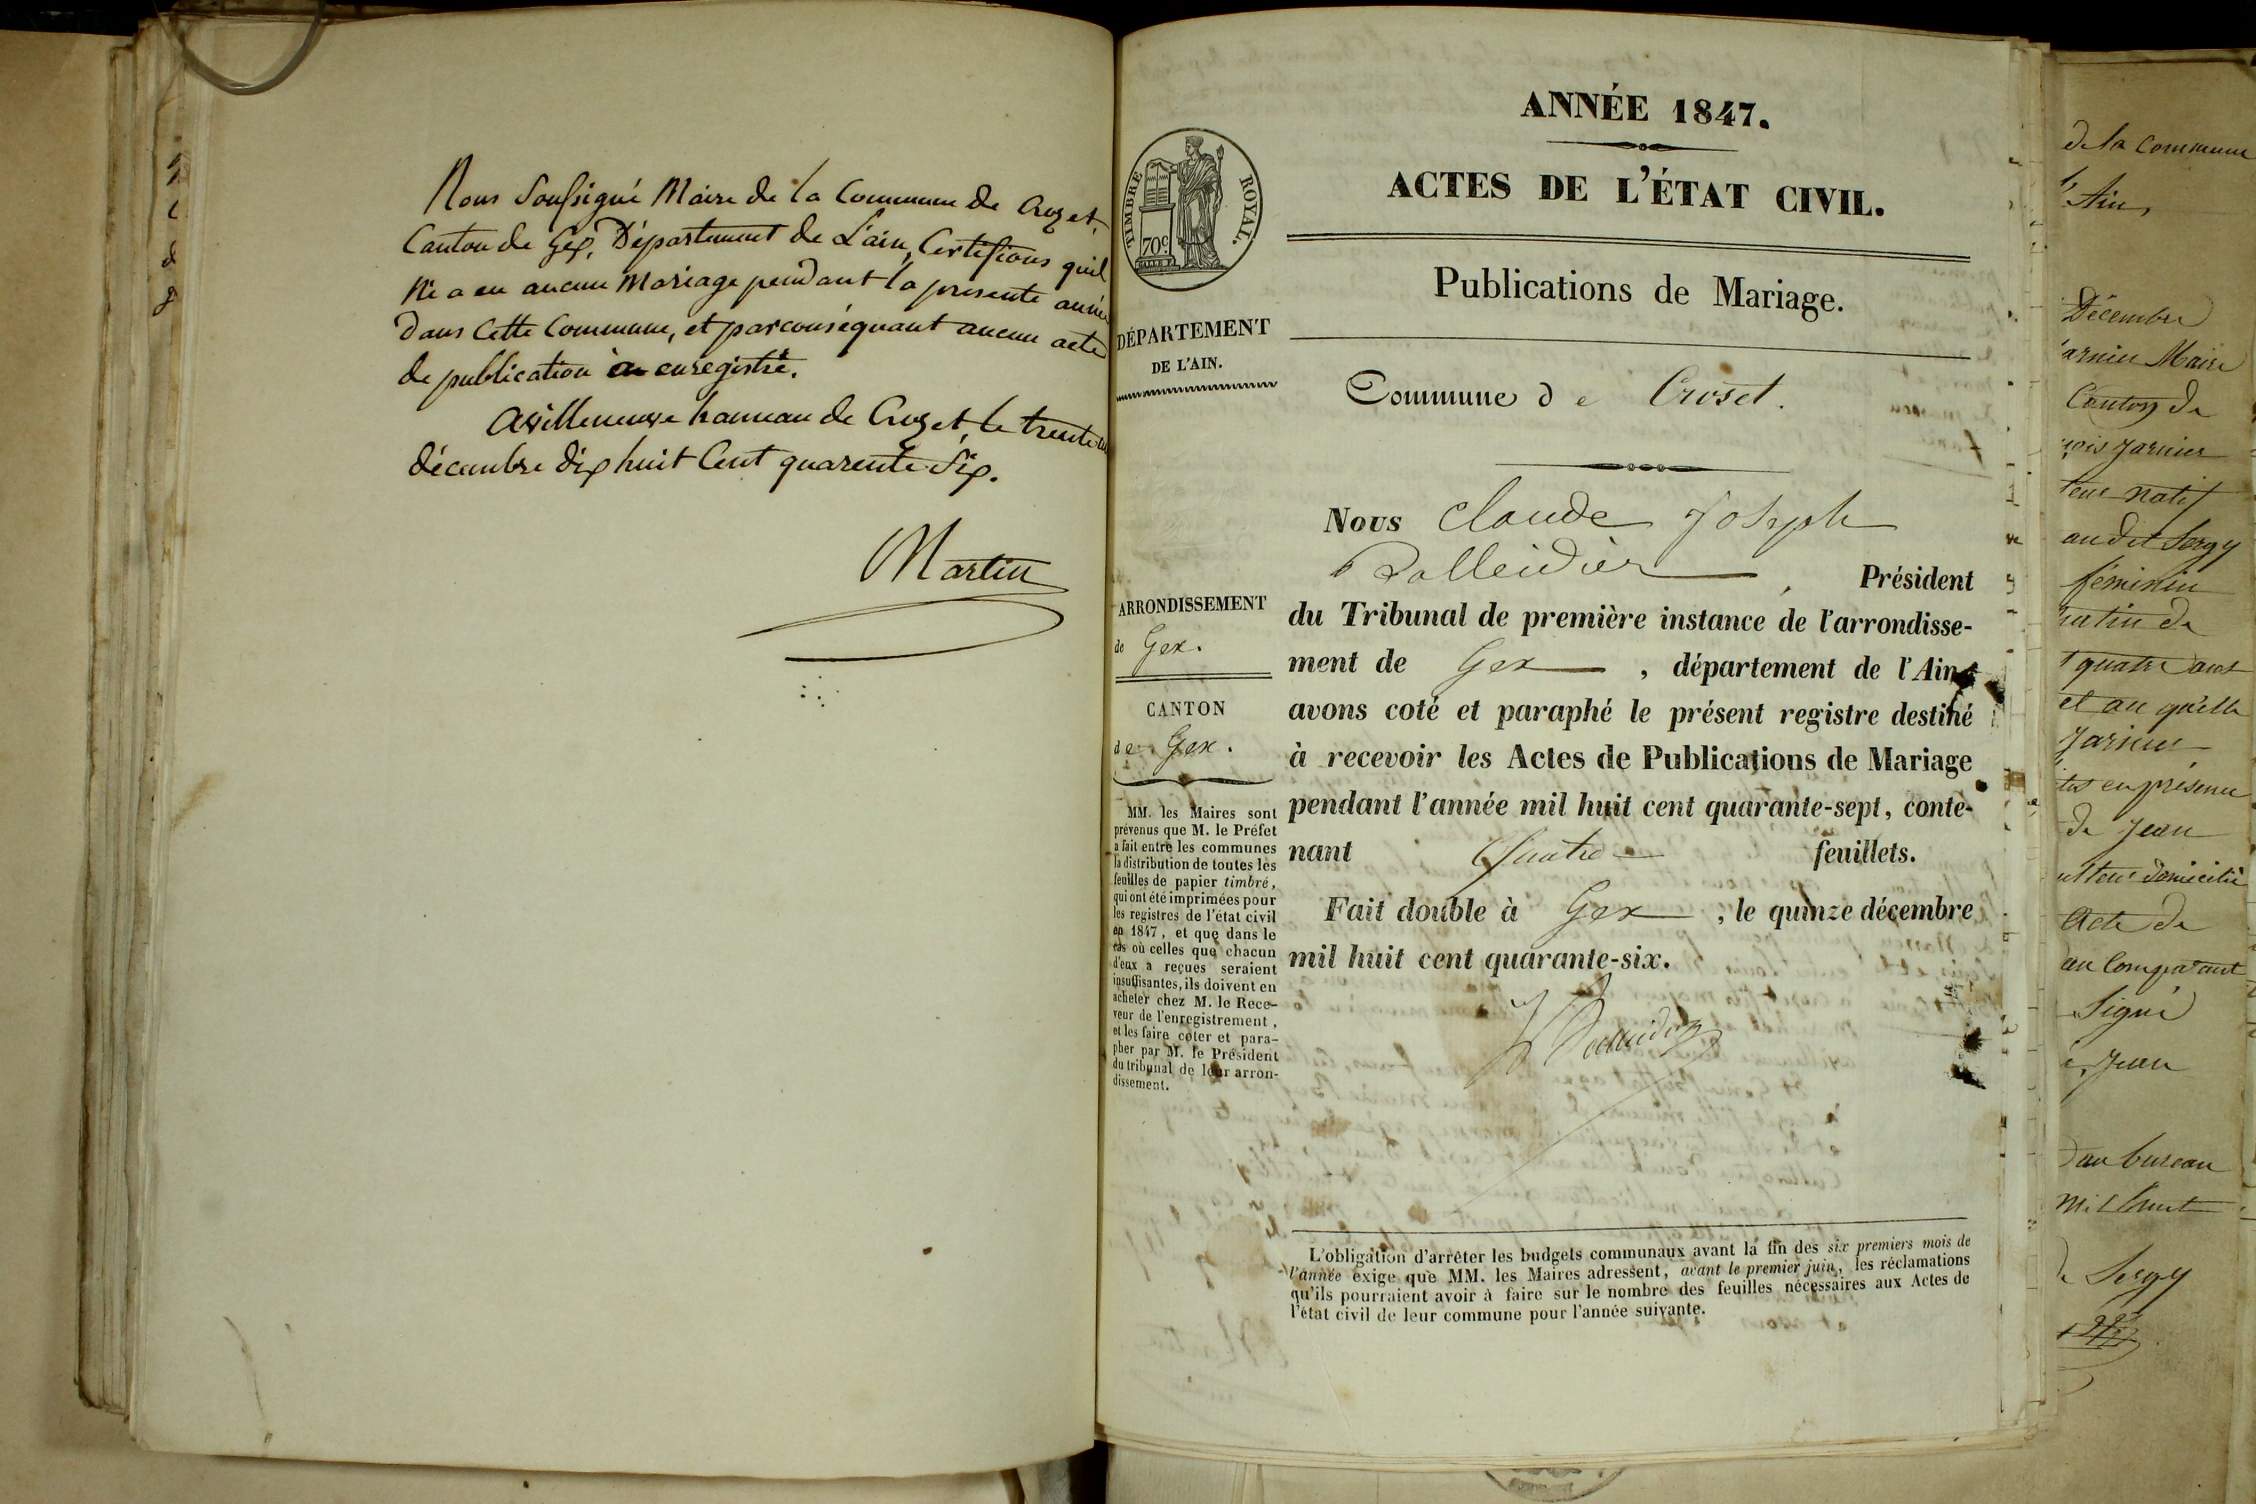 Nous Soussigné Maire de la Commune de Crozet,
Canton de Gex, Département de L'ain, Certifions qu'il
N'i a eu aucun Mariage pendant la presente année
Dans Cette Commune, et parconséquant aucun acte
de publication enregistré.
avilleneuve hameau de Crozet, le trente un
décembre dix huit Cent quarente Six.
Martin
ANNÉE 1847.
ACTES DE L'ÉTAT CIVIL.
TIMBRE ROYAL.
70c
Publications de Mariage.
DÉPARTEMENT
DE L'AIN.
Commune de Croset.
Nous Claude Joseph
Balleidier, Président
du Tribunal de première instance de l'arrondisse-
ment de Gex, département de l'Ain,
avons coté et paraphé le présent registre destiné
à recevoir les Actes de Publications de Mariage
pendant l'année mil huit cent quarante-sept, conte-
nant Quatre feuillets.
Fait double à Gex, le quinze décembre
mil huit cent quarante-six.
ARRONDISSEMENT
de Gex.
CANTON
de Gex.
MM. les Maires sont
prévenus que M. le Préfet
a fait entre les communes
la distribution de toutes les
feuilles de papier timbré,
qui ont été imprimées pour
les registres de l'état civil
en 1847, et que dans le
cas où celles que chacun
d'eux a reçues seraient
insuffisantes, ils doivent en
acheter chez M. le Rece-
veur de l'enregistrement,
et les faire coter et para-
pher par M. le Président
du tribunal de leur arron-
dissement.
L'obligation d'arrêter les budgets communaux avant la fin des six premiers mois de
l'année exige que MM. les Maires adressent, avant le premier juin, les réclamations
qu'ils pourraient avoir à faire sur le nombre des feuilles nécessaires aux Actes de
l'état civil de leur commune pour l'année suivante.
de la Commune
Ain,
Décembre
Maire
Canton de
natif
audit Sergy
féminin
de
quatre ans
et au qu'elle
en présence
de Jean
domicilié
Acte de
au Comparant
Signé
Jean
au bureau
mil huit
Sergy